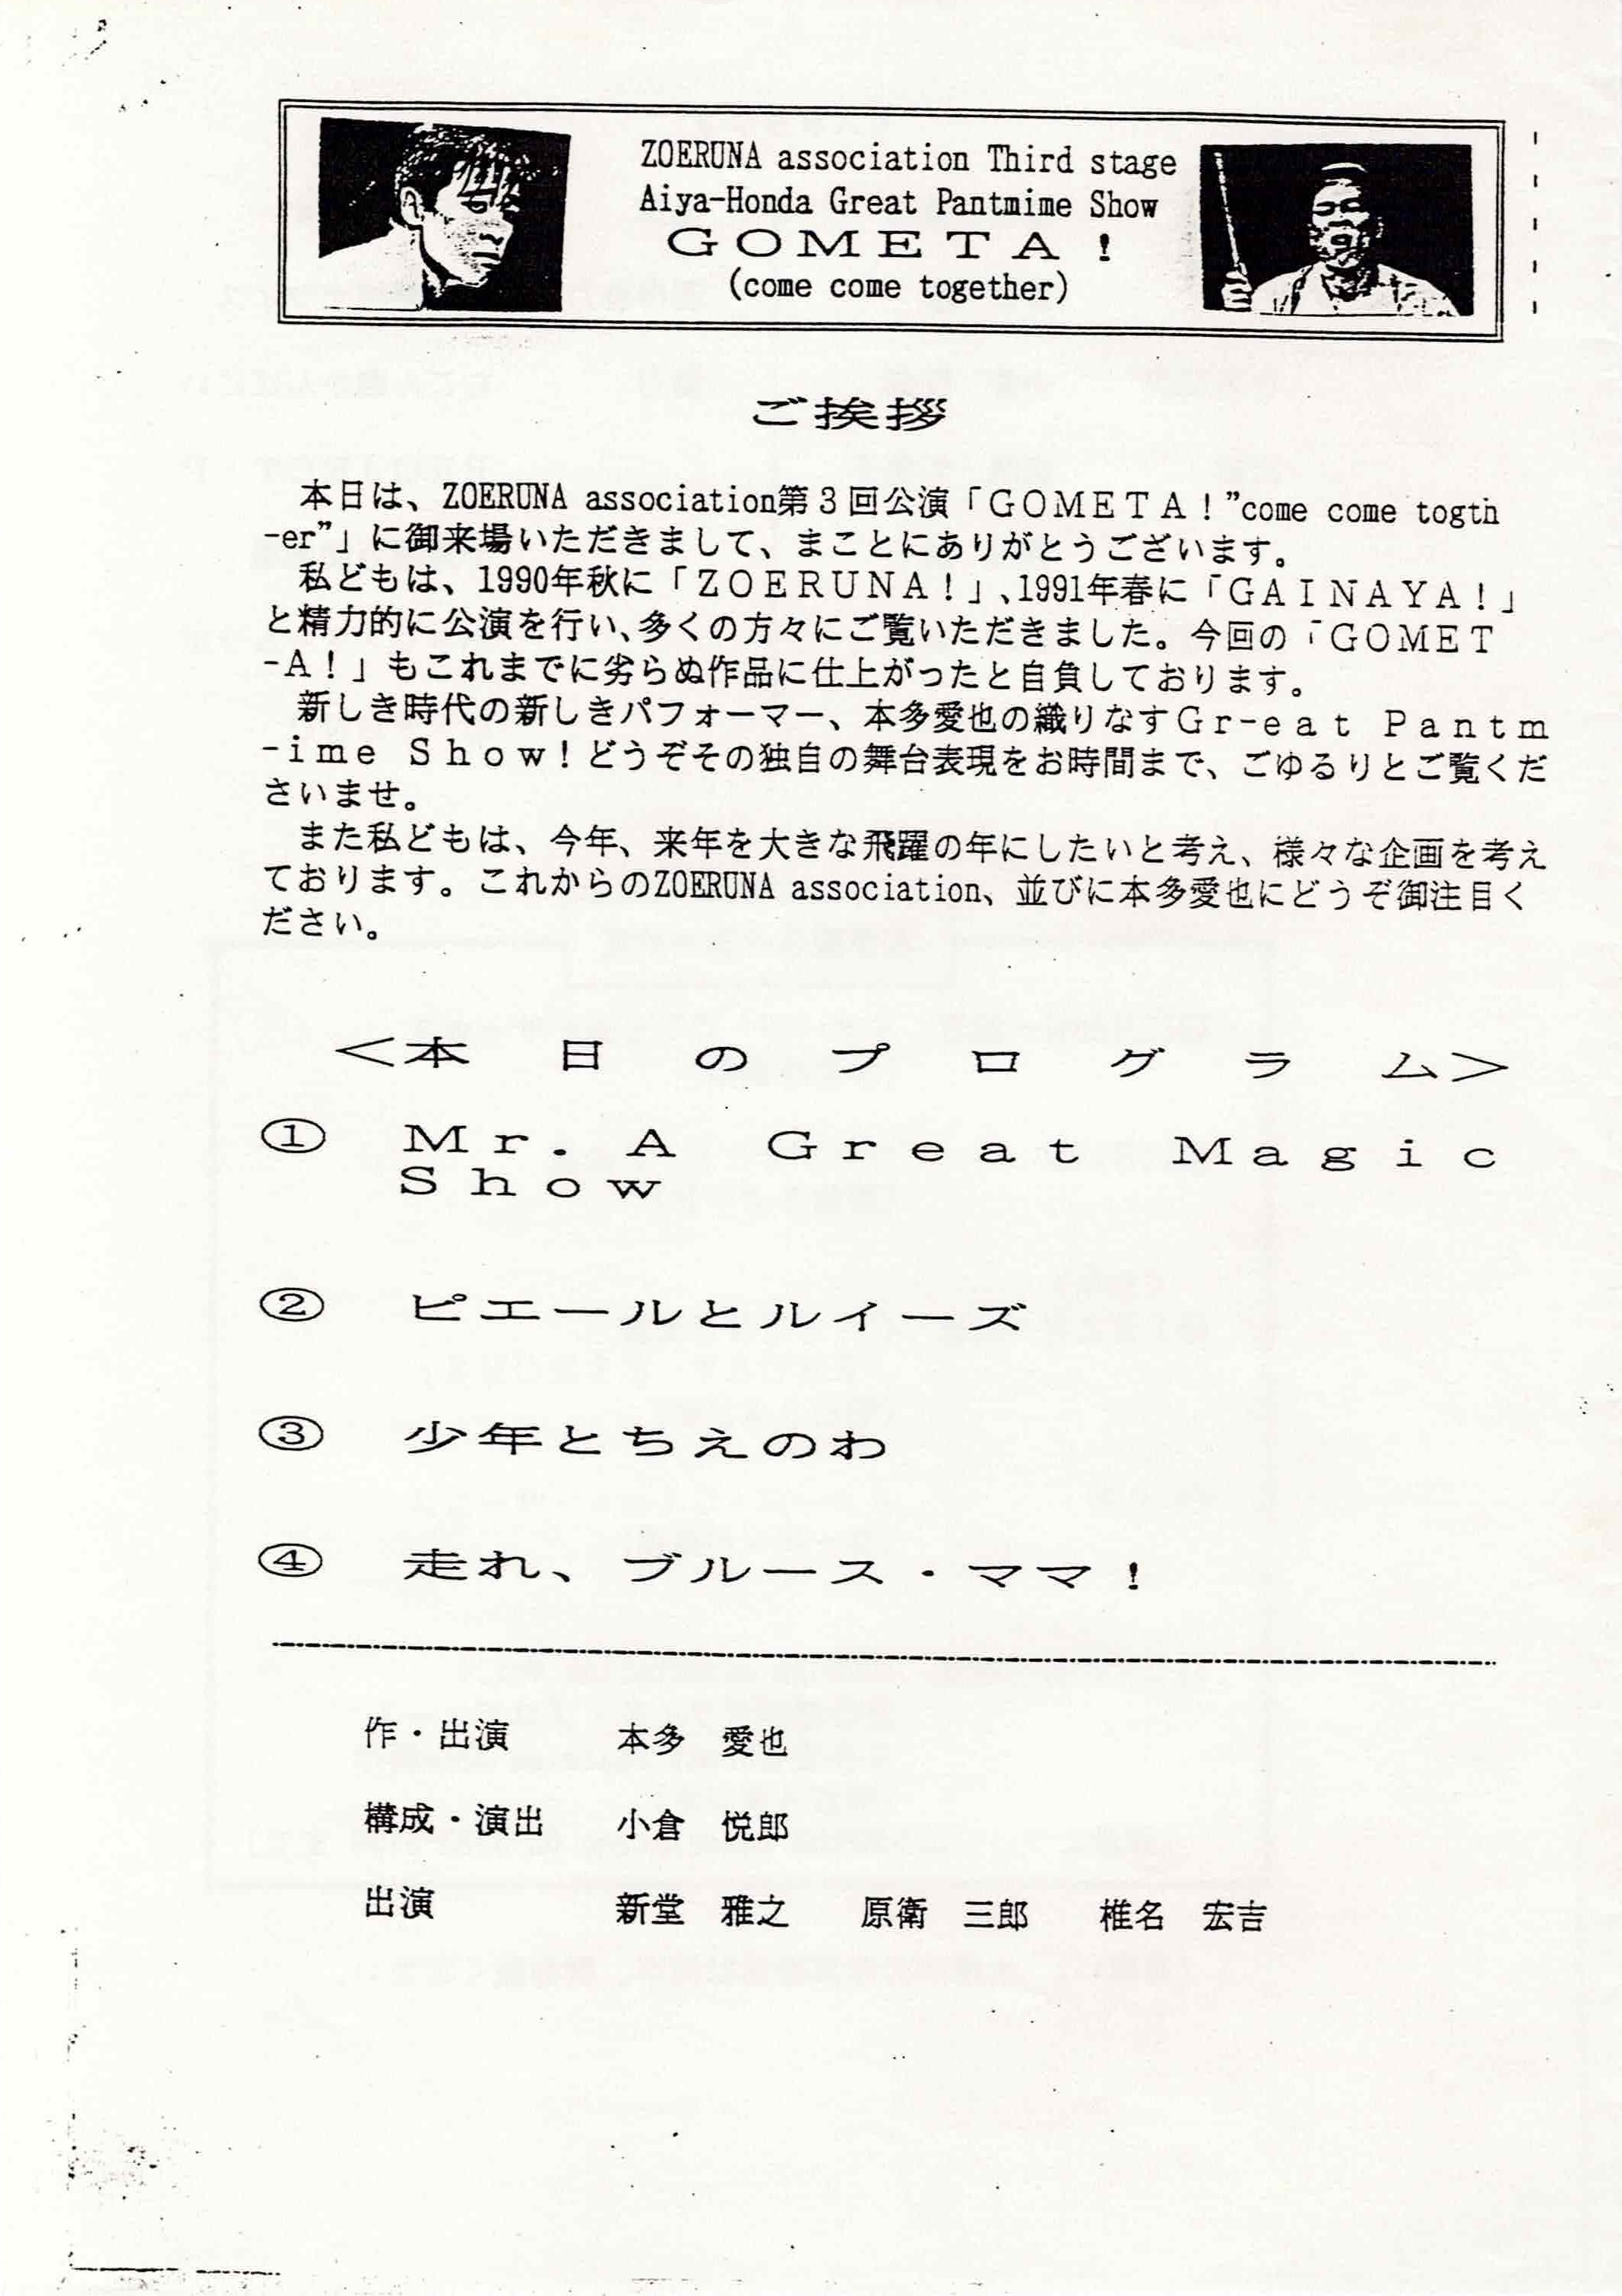 ZOERUNA association Third stage
Aiya-Honda Great Pantmime Show
GOMETA!
(come come together)
ご挨拶
本日は、ZOERUNA association第3回公演「GOMETA!”come come togth
-er”」に御来場いただきまして、まことにありがとうございます。
私どもは、1990年秋に「ZOERUNA!」、1991年春に「GAINAYA!」
と精力的に公演を行い、多くの方々にご覧いただきました。今回の「GOMET
-A!」もこれまでに劣らぬ作品に仕上がったと自負しております。
新しき時代の新しきパフォーマー、本多愛也の織りなすGr-eat Pantm
-ime Show!どうぞその独自の舞台表現をお時間まで、ごゆるりとご覧くだ
さいませ。
また私どもは、今年、来年を大きな飛躍の年にしたいと考え、様々な企画を考え
ております。これからのZOERUNA association、並びに本多愛也にどうぞ御注目く
ださい。
<本日のプログラム>
① Mr. A Great Magic
Show
② ピエールとルイーズ
③ 少年とちえのわ
④ 走れ、ブルース・ママ!
作・出演 本多 愛也
構成・演出 小倉 悦郎
出演 新堂 雅之 原衛 三郎 椎名 宏吉